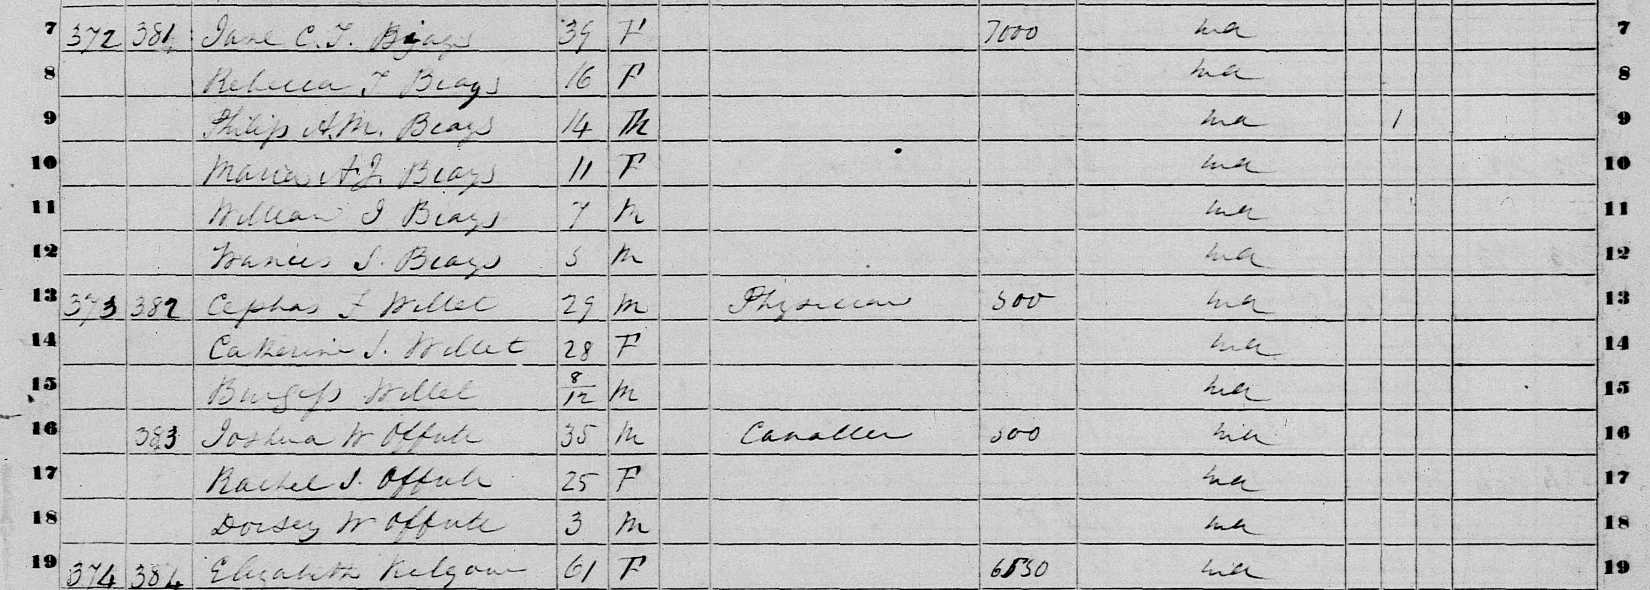 7 372 381 Jane C. T. Beays 39 F 7000 Md 7
8 Rebecca T Beays 16 F Md 8
9 Philip A.M. Beays 14 M Md 1 9
10 Maria A.J. Beays 11 F Md 10
11 William J Beays 7 M Md 11
12 Francis J. Beays 5 M Md 12
13 373 382 Cephas F Willet 29 M Physician 500 Md 13
14 Catherine J. Willet 28 F Md 14
15 Burgess Willet 8/12 M Md 15
16 383 Joshua W Offutt 35 M 500 Md 16
17 Rachel J. Offutt 25 F Md 17
18 Dorsey W Offutt 3 M Md 18
19 374 384 Elizabeth Kilgour 61 F Md 19